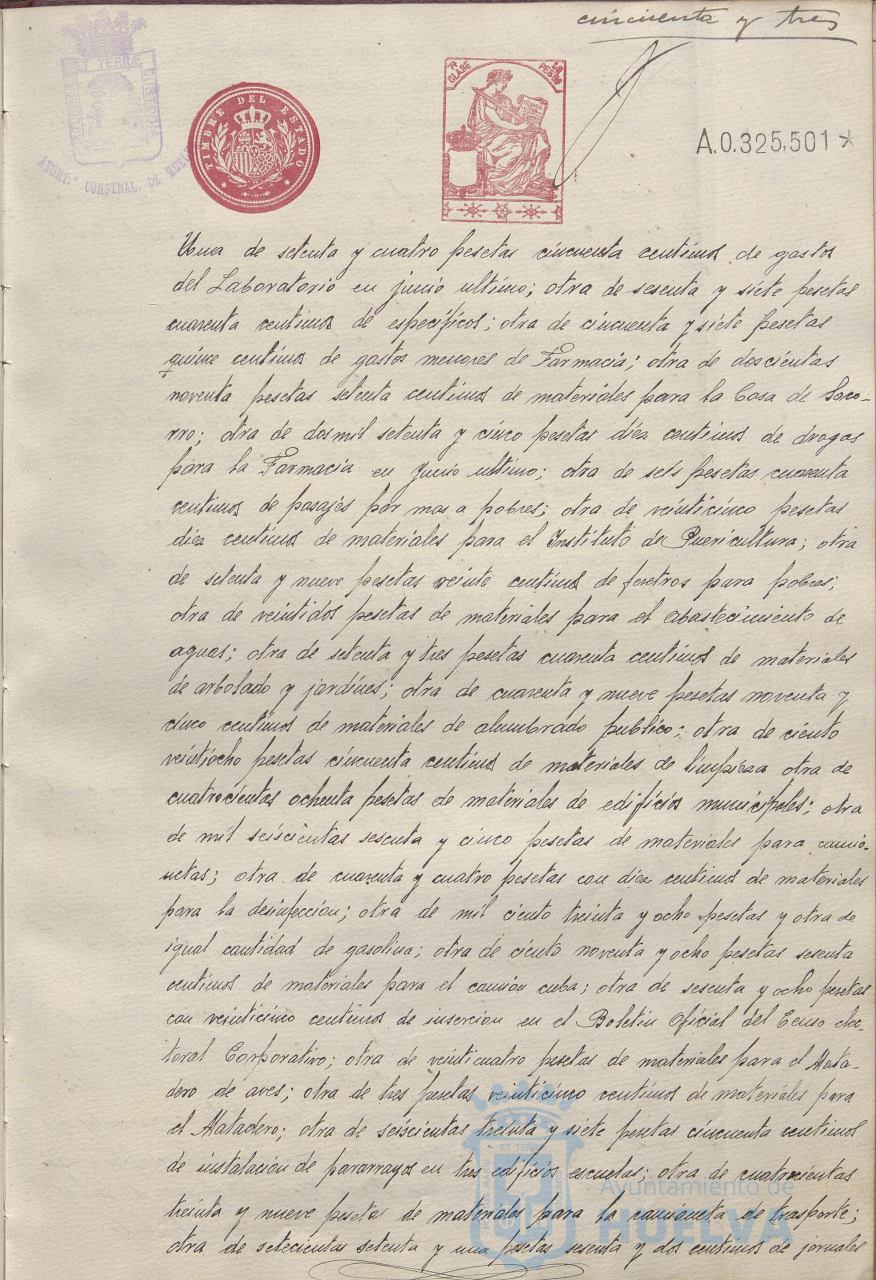 cincuenta y tres
PORTUS MARIS ET TERRÆ CUSTODIA
AYUNT.º CONSTNAL. DE HUELVA
TIMBRE DEL ESTADO
7ª CLASE
PESETAS
A.0.325,501*
Una de setenta y cuatro pesetas cincuenta centimos de gastos
del Laboratorio en junio ultimo; otra de sesenta y siete pesetas
cuarenta centimos de especificos; otra de cincuenta y siete pesetas
quince centimos de gastos menores de Farmacia; otra de doscientas
noventa pesetas setenta centimos de materiales para la Casa de Soco-
rro; otra de dosmil setenta y cinco pesetas diez centimos de drogas
para la Farmacia en Junio ultimo; otra de seis pesetas cuarenta
centimos de pasajes por mar a pobres; otra de veinticinco pesetas
diez centimos de materiales para el Instituto de Puericultura; otra
de setenta y nueve pesetas veinte centimos de feretros para pobres;
otra de veintidos pesetas de materiales para el abastecimiento de
aguas; otra de setenta y tres pesetas cuarenta centimos de materiales
de arbolado y jardines; otra de cuarenta y nueve pesetas noventa y
cinco centimos de materiales de alumbrado publico; otra de ciento
veintiocho pesetas cincuenta centimos de materiales de limpieza otra de
cuatrocientas ochenta pesetas de materiales de edificios municipales; otra
de mil seiscientas sesenta y cinco pesetas de materiales para camio-
netas; otra de cuarenta y cuatro pesetas con diez centimos de materiales
para la desinfeccion; otra de mil ciento treinta y ocho pesetas y otra de
igual cantidad de gasolina; otra de ciento noventa y ocho pesetas sesenta
centimos de materiales para el camión cuba; otra de sesenta y ocho pesetas
con veinticinco centimos de insercion en el Boletin Oficial del Censo elec-
toral Corporativo; otra de veinticuatro pesetas de materiales para el Mata-
dero de aves; otra de tres pesetas veinticinco centimos de materiales para
el Matadero; otra de seiscientas treinta y siete pesetas cincuenta centimos
de instalacion de pararrayos en tres edificios escuelas; otra de cuatrocientas
treinta y nueve pesetas de materiales para la camioneta de trasporte;
otra de setecientas setenta y una pesetas sesenta y dos centimos de jornales
Ayuntamiento de
HUELVA